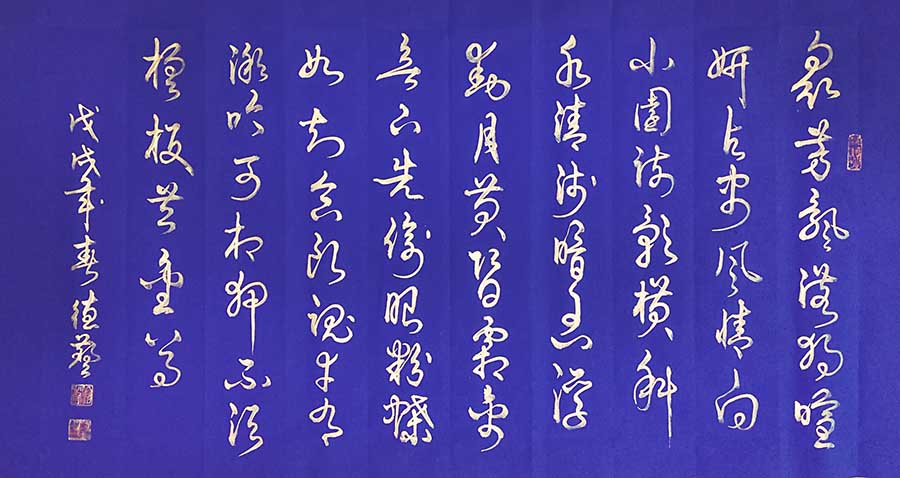 衆芳飄落獨暄
妍占盡風情向
小園疎影橫斜
水清淺暗香浮
動月黄昏霜禽
欲下先偷眼粉蝶
如知合斷魂幸有
微吟可相狎不須
檀板共金尊
戊戌年春德藝